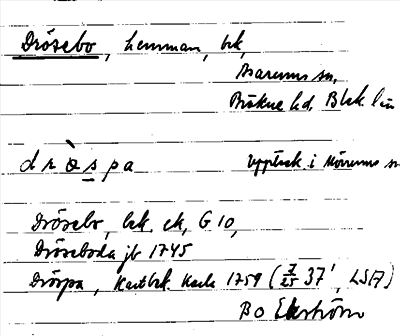 Drösebo, hemman, bk,
Asarums sn,
Bräkne hd, Blek. län
drœ̀spa uppteck. i Mörrums sn
Drösebo, bek. ek, G 10,
Dröseboda jb 1745
Dröspa, Kartbek. Karls 1759 (7/25 37', LSA)
Bo Ekström